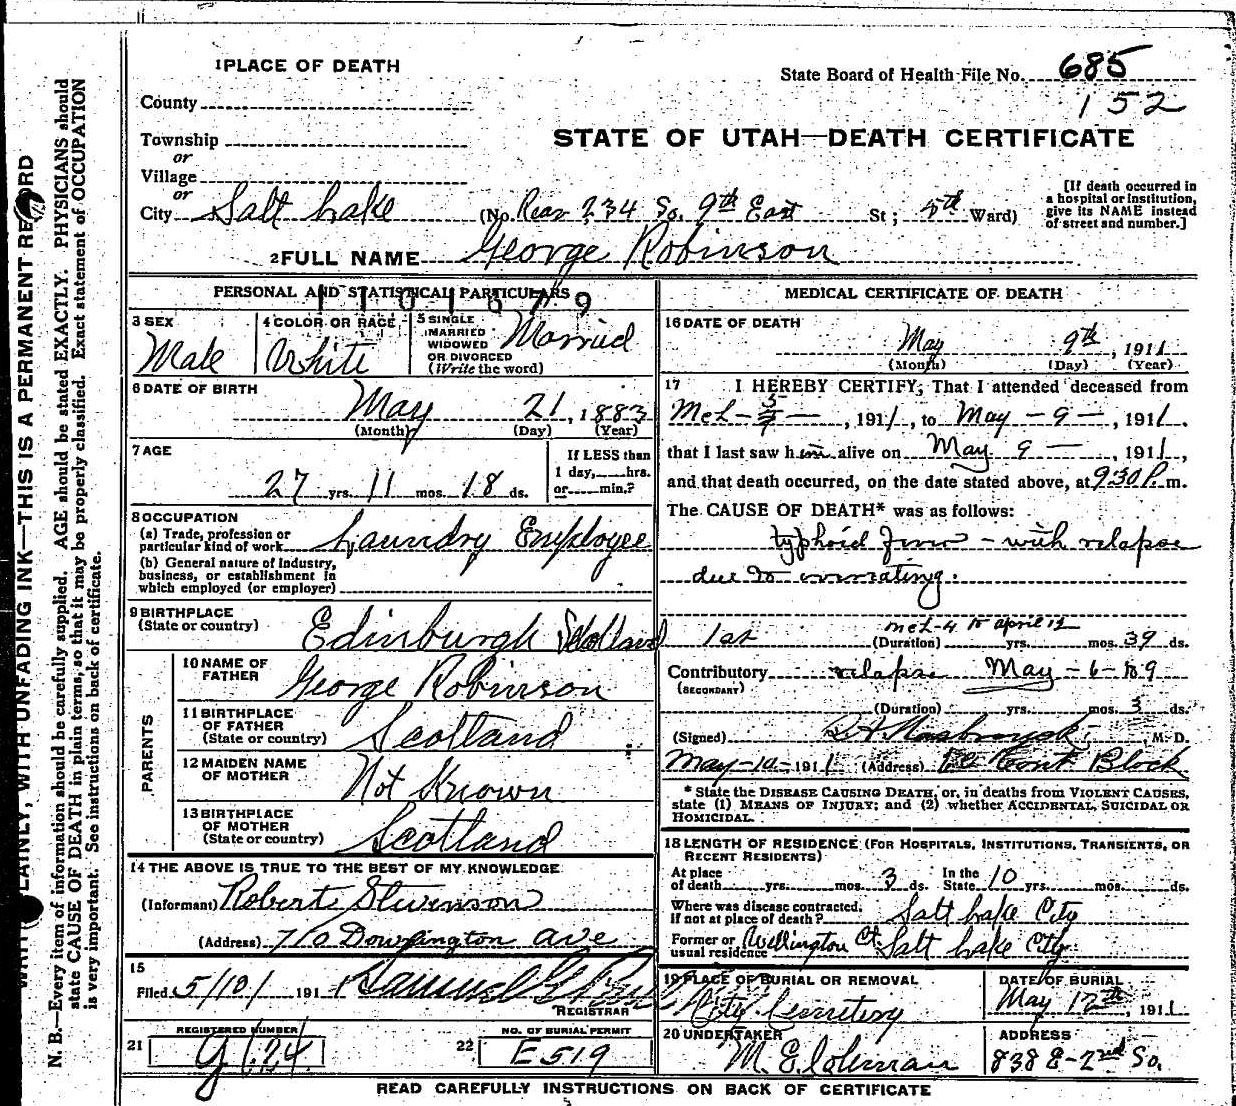 1 PLACE OF DEATH
State Board of Health File No. 685
152
County
STATE OF UTAH—DEATH CERTIFICATE
Township
or
Village
or
City Salt Lake (No. Rear 234 So. 9th East St; 5th Ward)
[If death occurred in
a hospital or institution,
give its NAME instead
of street and number.]
2 FULL NAME George Robinson
PERSONAL AND STATISTICAL PARTICULARS
3 SEX
Male
4 COLOR OR RACE
White
5 SINGLE
MARRIED
WIDOWED
OR DIVORCED
(Write the word)
Married
6 DATE OF BIRTH
May 21, 1883
(Month) (Day) (Year)
7 AGE
27 yrs. 11 mos. 18 ds.
If LESS than
1 day, hrs.
or min.?
8 OCCUPATION
(a) Trade, profession or
particular kind of work Laundry Employee
(b) General nature of industry,
business, or establishment in
which employed (or employer)
9 BIRTHPLACE
(State or country) Edinburgh Scotland
PARENTS
10 NAME OF
FATHER George Robinson
11 BIRTHPLACE
OF FATHER
(State or country) Scotland
12 MAIDEN NAME
OF MOTHER Not Known
13 BIRTHPLACE
OF MOTHER
(State or country) Scotland
14 THE ABOVE IS TRUE TO THE BEST OF MY KNOWLEDGE
(Informant) Robert Stevenson
(Address) 710 Downington ave
15
Filed 5/10/ 191 1 Samuel G
REGISTRAR
REGISTERED NUMBER
21 G 124
NO. OF BURIAL PERMIT
22 E 519
MEDICAL CERTIFICATE OF DEATH
16 DATE OF DEATH
May 9th, 1911
(Month) (Day) (Year)
17 I HEREBY CERTIFY, That I attended deceased from
Mch, 1911, to May - 9 -, 1911.
that I last saw him alive on May 9 —, 1911,
and that death occurred, on the date stated above, at 9:30 P. m.
The CAUSE OF DEATH* was as follows:
typhoid fever - with relapse
due to overeating.
Mch-4 to april 12
1st (Duration) yrs. mos. 39 ds.
Contributory relapse May - 6 - to 9
(SECONDARY)
(Duration) yrs. mos. 3 ds.
(Signed) M. D.
May-10-1911 (Address) Cont. Block
* State the DISEASE CAUSING DEATH, or, in deaths from VIOLENT CAUSES,
state (1) MEANS OF INJURY; and (2) whether ACCIDENTAL, SUICIDAL OR
HOMICIDAL.
18 LENGTH OF RESIDENCE (FOR HOSPITALS, INSTITUTIONS, TRANSIENTS, OR
RECENT RESIDENTS)
At place
of death yrs. mos. 3 ds. In the
State 10 yrs. mos. ds.
Where was disease contracted,
if not at place of death? Salt Lake City
Former or
usual residence Wellington Ct. Salt Lake City
19 PLACE OF BURIAL OR REMOVAL
City Cemetery
DATE OF BURIAL
May 12th, 1911
20 UNDERTAKER
M. E. Coleman
ADDRESS
838 E-2nd So.
READ CAREFULLY INSTRUCTIONS ON BACK OF CERTIFICATE
PLAINLY, WITH UNFADING INK—THIS IS A PERMANENT RECORD
N. B.—Every item of information should be carefully supplied. AGE should be stated EXACTLY. PHYSICIANS should
state CAUSE OF DEATH in plain terms, so that it may be properly classified. Exact statement of OCCUPATION
is very important. See instructions on back of certificate.